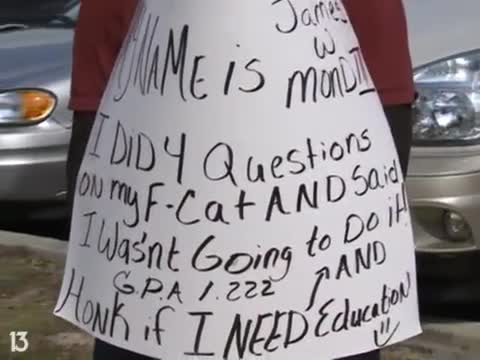 James
W
MY NAME is monD III
I DiD 4 Questions
ON my F-Cat AND Said
I Wasn't Going to Do it!
G.P.A 1.222 AND
HONK if I NEED Education
13